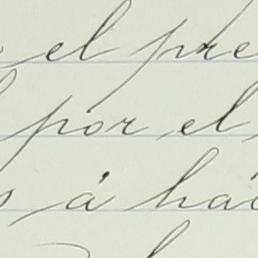 el pre
por el
á há